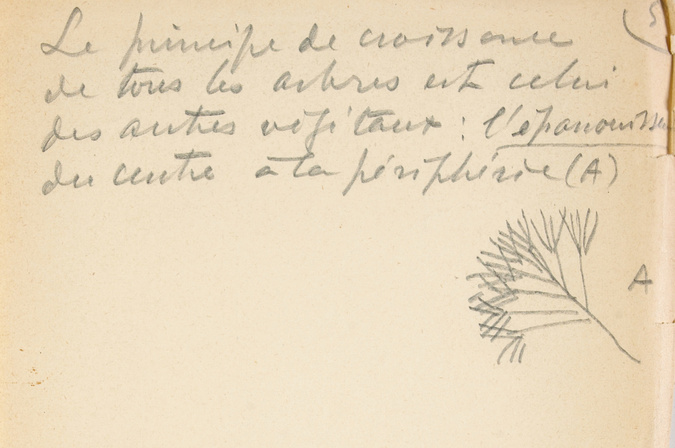 5
Le principe de croissance
de tous les arbres est celui
des autres végétaux : l'épanouissem
du centre à la périphérie (A)
A